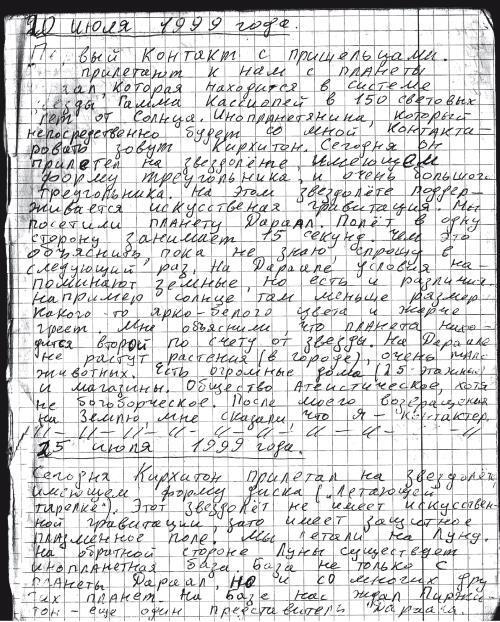 20 июля 1999 года.
вый контакт с пришельцами.
прилетают к нам с планеты
которая находится в системе
Гамма Кассиопей в 150 световых
лет от Солнца. Инопланетянина, который
непосредственно будет со мной контакти-
ровать зовут Кирхитон. Сегодня он
прилетел на звездолёте, имеющем
форму треугольника, и очень большого
треугольника. На этом звездолёте поддер-
живается искусственая гравитация. Мы
посетили планету Дараал. Полёт в одну
сторону занимает 15 секунд. Чем это
объяснить, пока не знаю, спрошу в
следующий раз. На Дараале условия на-
поминают земные, но есть и различия.
например солнце там меньше размер
какого-то ярко-белого цвета и жарче
греет. Мне объяснили, что планета нахо-
дится второй по счету от звезды. На Дараале
не растут растения (в городе), очень мало
животных. Есть огромные дома (25-этажные
и магазины. Общество Атеистическое, хотя
не богоборческое. После моего возвращения
на Землю мне сказали, что я - контактер.
-//-//-//-//-//-//-//-//-//-//
25 июля 1999 года.
Сегодня Кирхитон прилетал на звездолёте,
имеющем форму диска („Летающей
тарелке"). Этот звездолёт не имеет искусствен-
ной гравитации зато имеет защитное
плазменное поле. Мы летали на Луну.
на обратной стороне Луны существует
инопланетная база. База не только с
планеты Дараал, но и со многих дру
гих планет. На базе нас ждал Пиржи-
тон - еще один представитель Дараала.